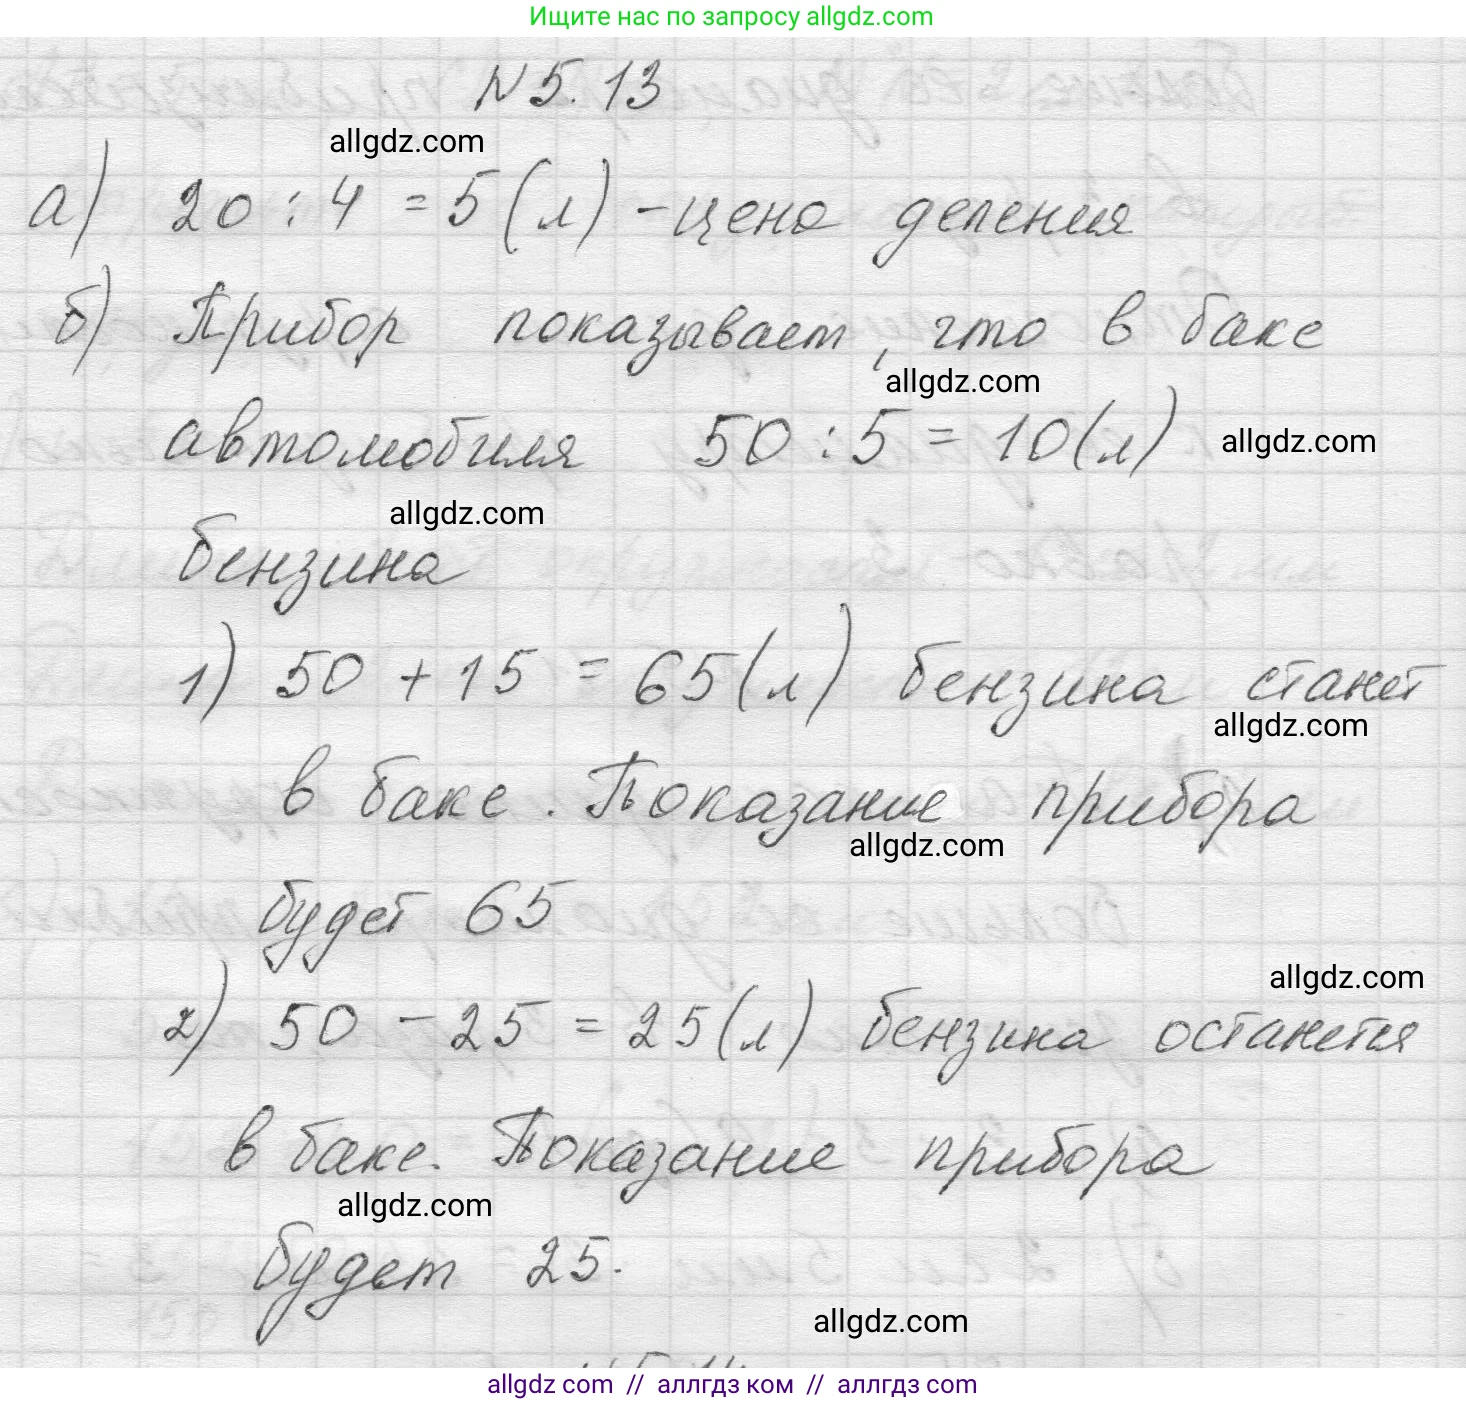 Ищите нас по запросу allgdz.com
N 5.13
allgdz.com
а) 20 : 4 = 5 (л) - цена деления
б) Прибор показывает, что в баке
allgdz.com
автомобиля 50 : 5 = 10 (л) allgdz.com
allgdz.com
бензина
1) 50 + 15 = 65 (л) бензина станет
allgdz.com
в баке. Показание прибора
allgdz.com
будет 65
allgdz.com
2) 50 - 25 = 25 (л) бензина останется
в баке. Показание прибора
allgdz.com
будет 25.
allgdz.com
allgdz com // аллгдз ком // аллгдз com